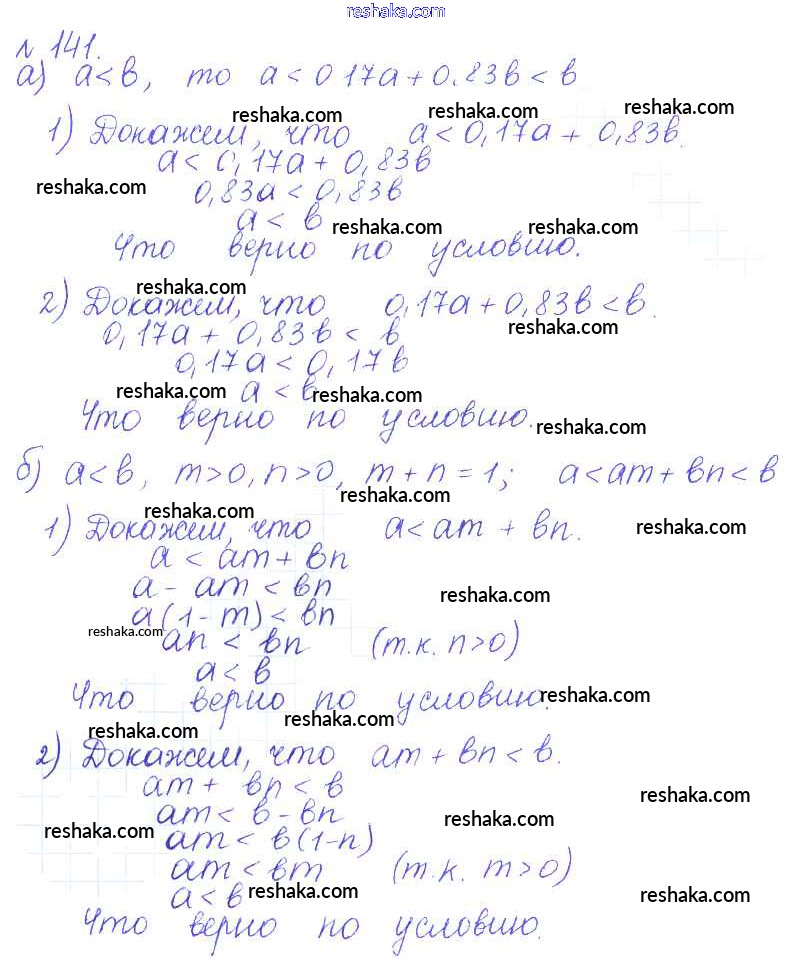 reshaka.com
№ 141.
а) a < b, то a < 0 17a + 0.83b < b
reshaka.com reshaka.com reshaka.com
1) Докажем, что a < 0,17a + 0,83b.
a < 0,17a + 0,83b
reshaka.com 0,83a < 0,83b
a < b reshaka.com reshaka.com
Что верно по условию.
reshaka.com
2) Докажем, что 0,17a + 0,83b < b.
0,17a + 0,83b < b reshaka.com
0,17a < 0,17b
reshaka.com a < b reshaka.com
Что верно по условию. reshaka.com
б) a < b, m > 0, n > 0, m + n = 1; a < am + bn < b
reshaka.com reshaka.com
1) Докажем, что a < am + bn. reshaka.com
a < am + bn
a - am < bn reshaka.com
a(1 - m) < bn
reshaka.com an < bn (т.к. n > 0)
a < b
Что верно по условию. reshaka.com
reshaka.com reshaka.com
2) Докажем, что am + bn < b.
am + bn < b reshaka.com
am < b - bn reshaka.com
reshaka.com am < b(1 - n)
am < bm (т.к. m > 0)
a < b reshaka.com reshaka.com
Что верно по условию.